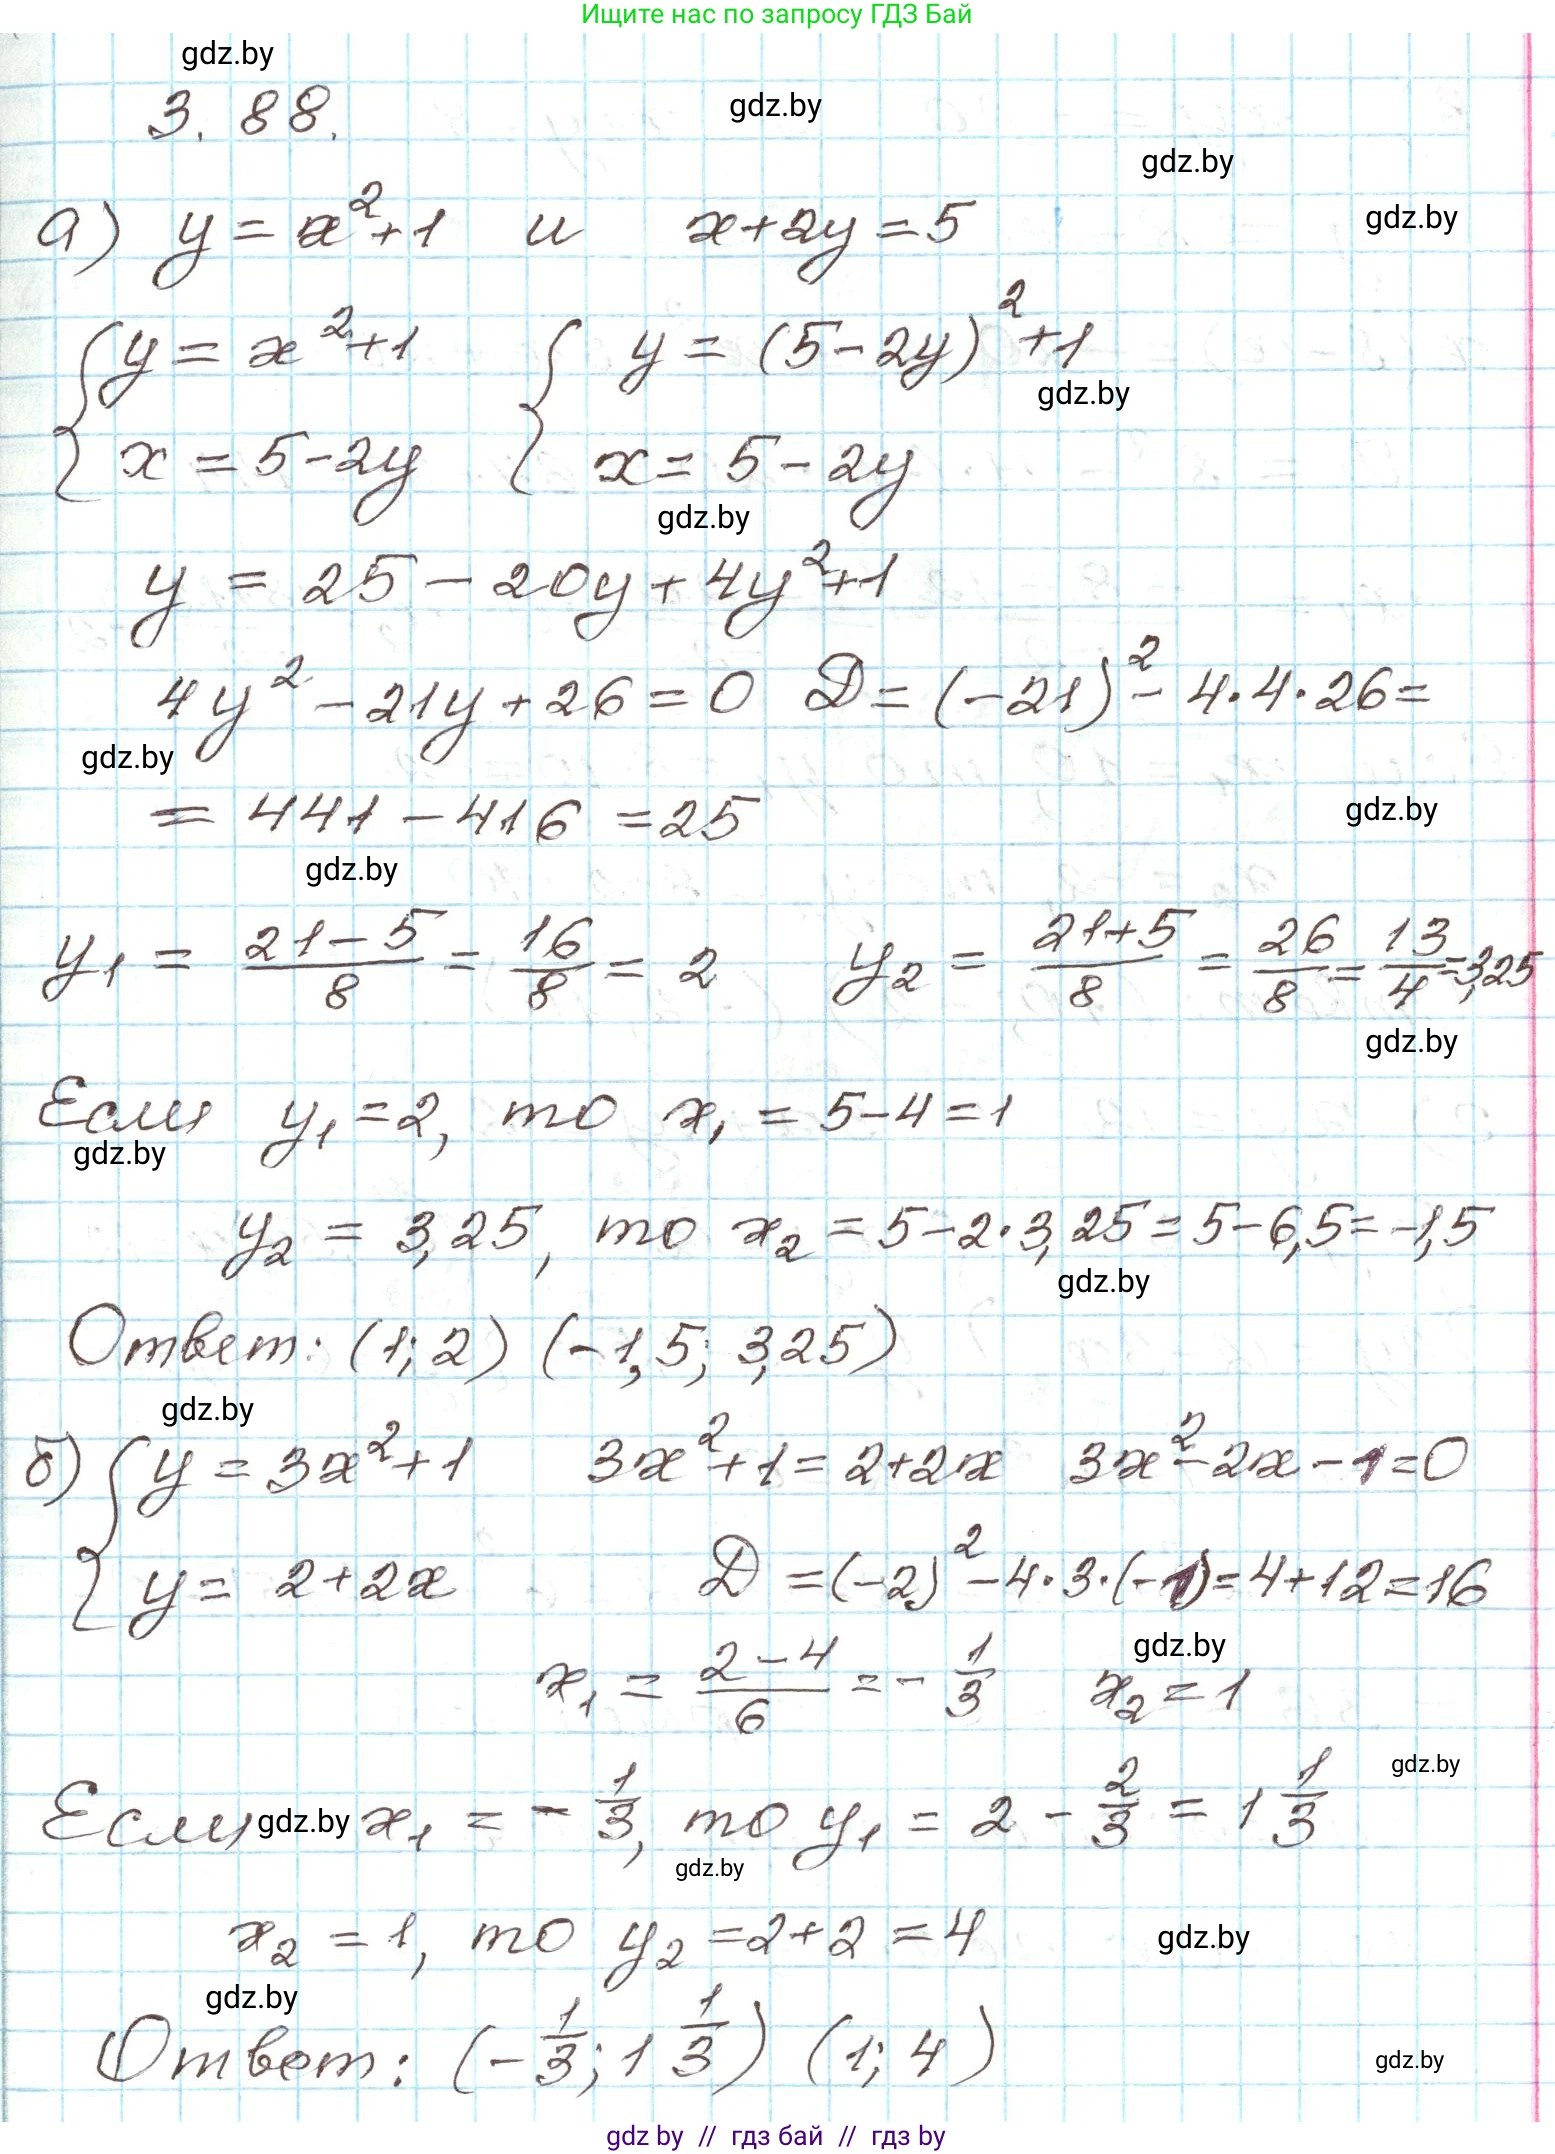 Ищите нас по запросу ГДЗ Бай
gdz.by
3.88.
gdz.by
gdz.by
а) y = x²+1 и x+2y=5
gdz.by
{ y = x²+1 { y = (5-2y)²+1
gdz.by
x = 5-2y x = 5-2y
gdz.by
y = 25 - 20y + 4y²+1
4y² - 21y + 26 = 0 D = (-21)² - 4·4·26 =
gdz.by
= 441 - 416 = 25
gdz.by
gdz.by
y₁ = (21-5)/8 = 16/8 = 2 y₂ = (21+5)/8 = 26/8 = 13/4 = 3,25
gdz.by
Если y₁=2, то x₁ = 5-4=1
gdz.by
y₂ = 3,25, то x₂ = 5-2·3,25=5-6,5=-1,5
gdz.by
Ответ: (1; 2) (-1,5; 3,25)
gdz.by
б) { y = 3x²+1 3x²+1=2+2x 3x²-2x-1=0
y = 2+2x D = (-2)²-4·3·(-1)=4+12=16
gdz.by
x₁ = (2-4)/6 = - 1/3 x₂ = 1
gdz.by
Если x₁ = - 1/3, то y₁ = 2 - 2/3 = 1 1/3
gdz.by
gdz.by
x₂ = 1, то y₂ = 2+2 = 4
gdz.by
gdz.by
Ответ: (- 1/3; 1 1/3) (1; 4)
gdz.by
gdz by // гдз бай // gdz by